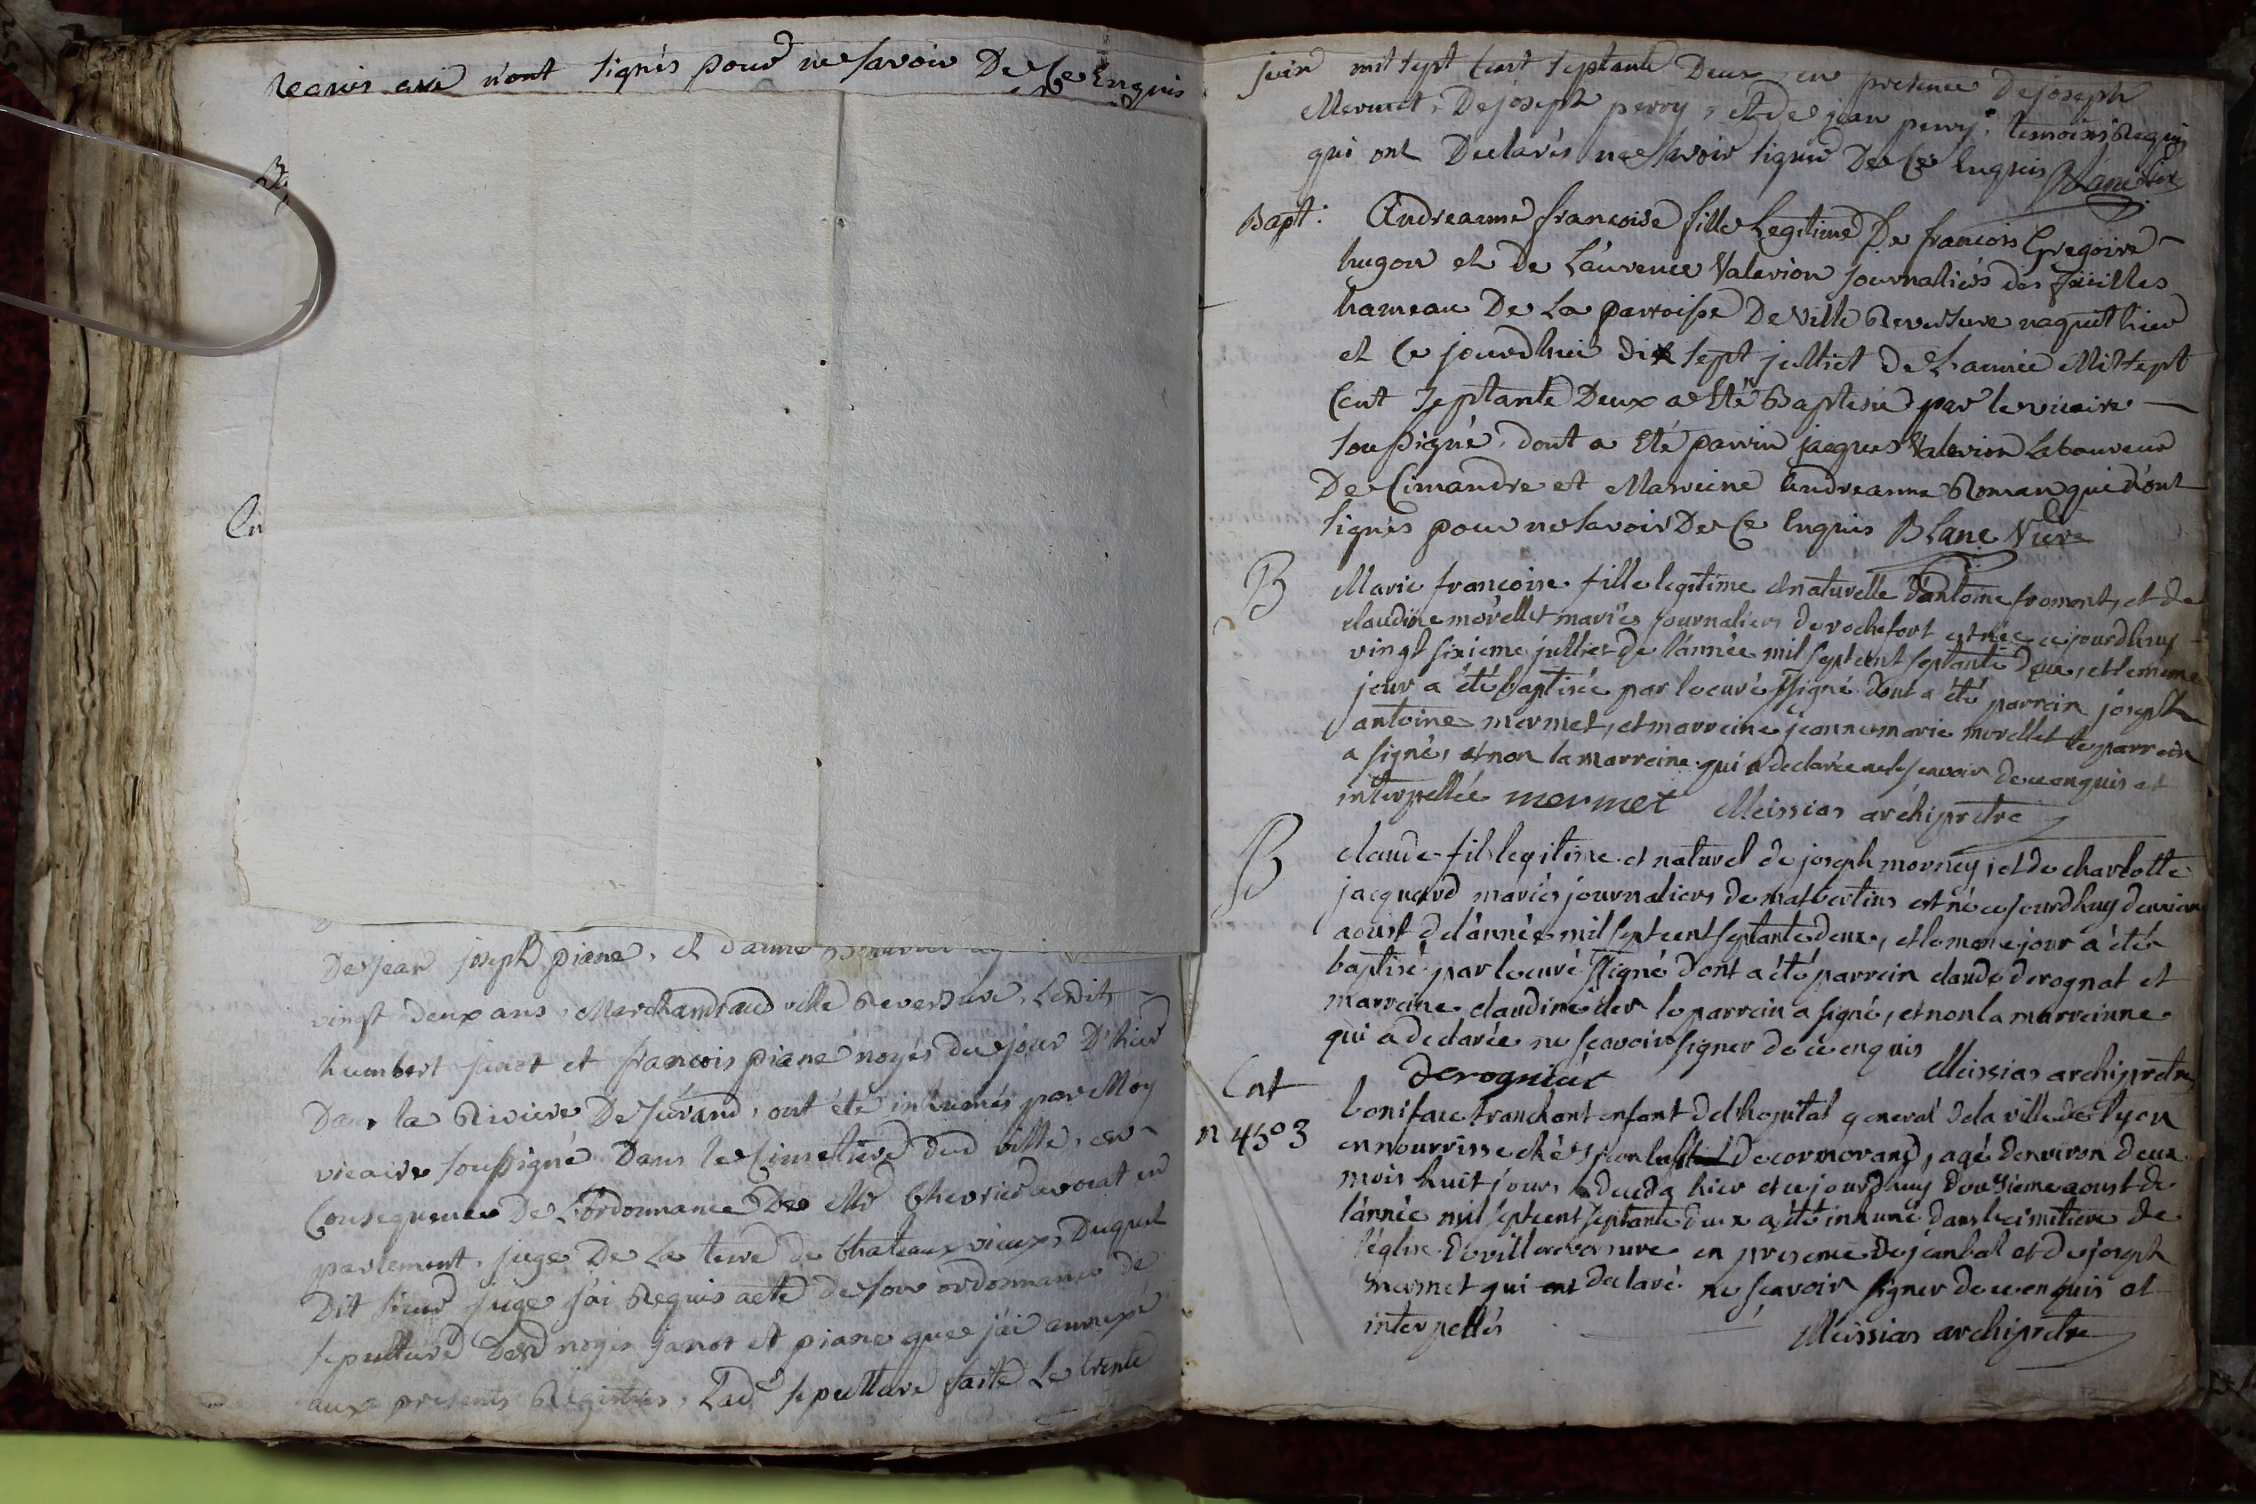 requis qui n'ont signés pour ne savoir De Ce Enquis
B
En
De jean joseph piane, et d'anne
vingt deux ans, Marchand aud ville Reversure, Ledit
humbert janot et francois piane noyés du jour D'hier
Dans la Riviere De surand, ont été inhumés par Moy
vicaire soussigné Dans le Cimetiere dud ville, en
Consequence De L'ordonnance De Mr Chevrier avocat en
parlement, juge De La terre de Chateauxvieux, Duquel
Dit sieur juge j'ai Requis acte de son ordonnance de
sepulture Desd noyés janot et piane que j'ai annexé
aux presents Registres, Lad sepulture faite Le trente
juin mil sept Cent septante Deux, en presence De joseph
Mermet, De joseph perry, et de jean perry, temoins Requis
qui ont Declarés ne savoir signer De Ce Enquis Blanc vicre
Bapt: Andreanne francoise fille Legitime De francois Gregoire
hugon et de Laurence Valerion journaliers des
hameau De La parroisse De ville Reversure naquit hier
et Ce jourd'hui dix sept julliet de L'année Mil sept
Cent septante Deux a Eté Baptisée par le vicaire
soussigné, dont a Eté parrin jacques Valerion Laboureur
De Cimandre et Marreine Andreanne Roman qui n'ont
signés pour ne savoir De Ce Enquis Blanc Vicre
B Marie francoise fille legitime et naturelle d'antoine fromont, et de
claudine morellet mariés journaliers de rochefort est née cejourdhuy
vingt sixieme julliet de l'année mil sept cent septante deux, et le meme
jour a été baptisée par le curé ssigné dont a été parrein joseph
antoine mermet, et marreine jeanne marie morellet le parrein
a signé, et non la marreine qui a declarée ne sçavoir de ce enquis et
interpellée mermet Meissias archiprêtre
B claude fils legitime et naturel de joseph morney, et de charlotte
jacquard mariés journaliers de malbertins est né cejourdhuy
aoust de l'année mil sept cent septante deux, et le meme jour a été
baptisé par le curé ssigné dont a été parrein claude derognat et
marreine claudine der le parrein a signé, et non la marreinne
qui a declarée ne sçavoir signer de ce enquis
derogniat Meissias archiprêtre
Ent boniface tranchant enfant de l'hopital general de la ville de lyon
n 4503 en nourrisse chés de cormorand, agé d'environ deux
mois huit jours, deceda hier et cejourdhuy aoust de
l'année mil sept cent septante deux a été inhumé dans le cimetiere de
l'église de villereversure en presence de jean bal et de joseph
mermet qui ont declaré ne sçavoir signer de ce enquis et
interpellés Meissias archiprêtre